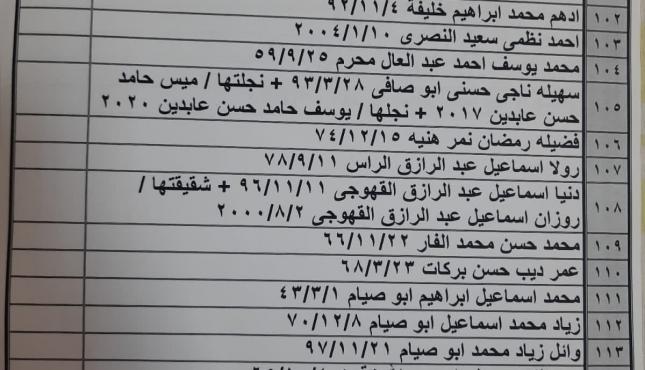 ١٠٢ ادهم محمد ابراهيم خليفة ٩٢/١١/٤
١٠٣ احمد نظمى سعيد النصرى ٢٠٠٤/١/١٠
١٠٤ محمد يوسف احمد عبد العال محرم ٥٩/٩/٢٥
١٠٥ سهيله ناجى حسنى ابو صافى ٩٣/٣/٢٨ + نجلتها / ميس حامد
حسن عابدين ٢٠١٧ + نجلها / يوسف حامد حسن عابدين ٢٠٢٠
١٠٦ فضيله رمضان نمر هنيه ٧٤/١٢/١٥
١٠٧ رولا اسماعيل عبد الرازق الراس ٧٨/٩/١١
١٠٨ دنيا اسماعيل عبد الرازق القهوجى ٩٦/١١/١١ + شقيقتها /
روزان اسماعيل عبد الرازق القهوجى ٢٠٠٠/٨/٢
١٠٩ محمد حسن محمد الفار ٦٦/١١/٢٢
١١٠ عمر ديب حسن بركات ٦٨/٣/٢٣
١١١ محمد اسماعيل ابراهيم ابو صيام ٤٣/٣/١
١١٢ زياد محمد اسماعيل ابو صيام ٧٠/١٢/٨
١١٣ وائل زياد محمد ابو صيام ٩٧/١١/٢١